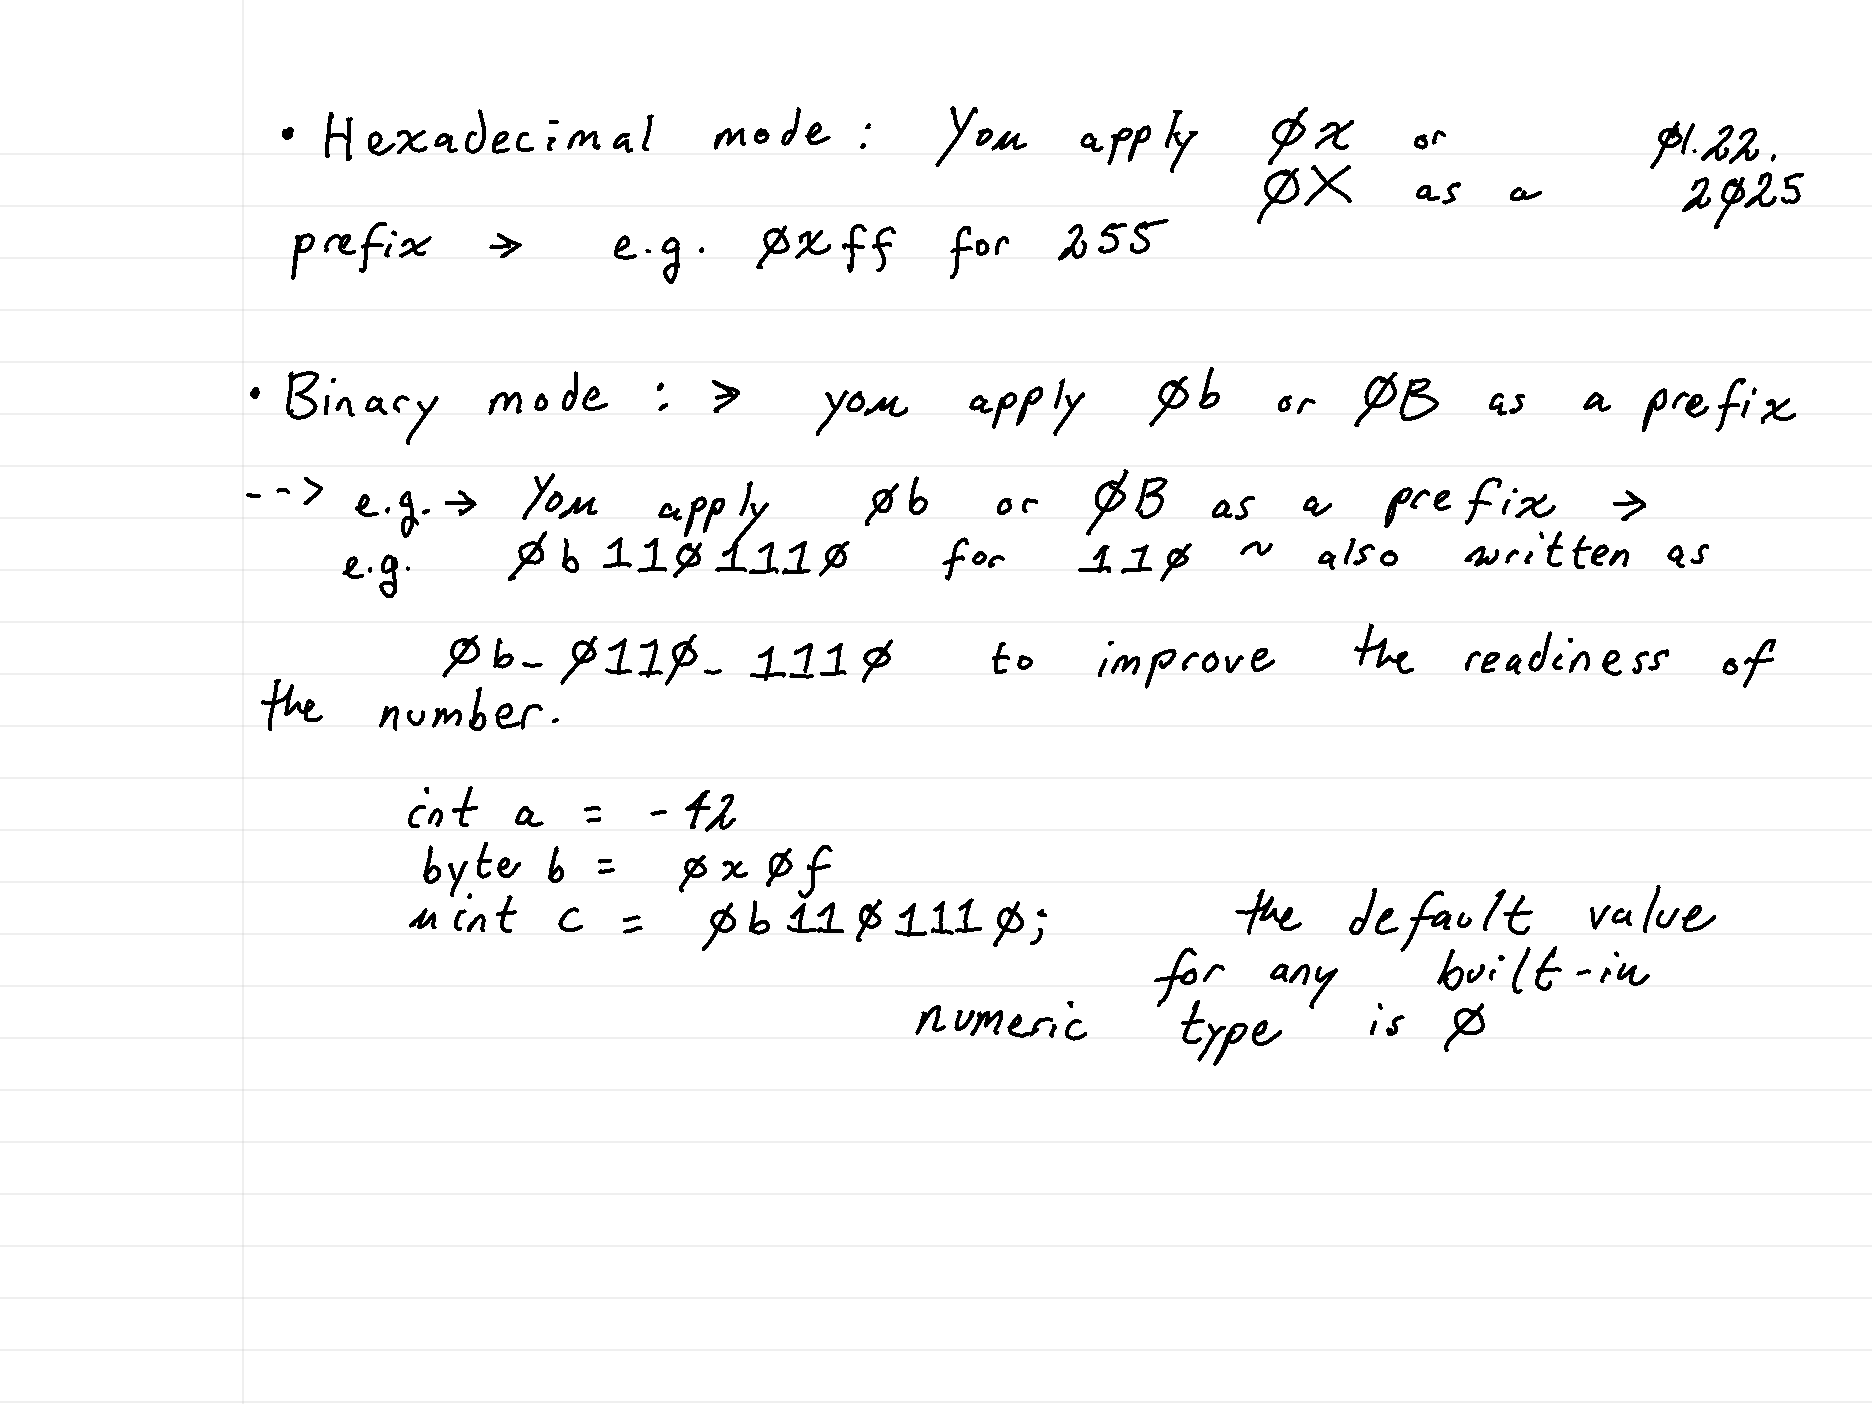 • Hexadecimal mode : You apply 0x or
01.22.
0X as a
2025
prefix → e.g. 0xff for 255
• Binary mode : > you apply 0b or 0B as a prefix
--> e.g. → You apply 0b or 0B as a prefix →
e.g. 0b1101110 for 110 ~ also written as
0b_0110_1110 to improve the readiness of
the number.
int a = -42
byte b = 0x0f
uint c = 0b1101110;
the default value
for any built-in
numeric type is 0